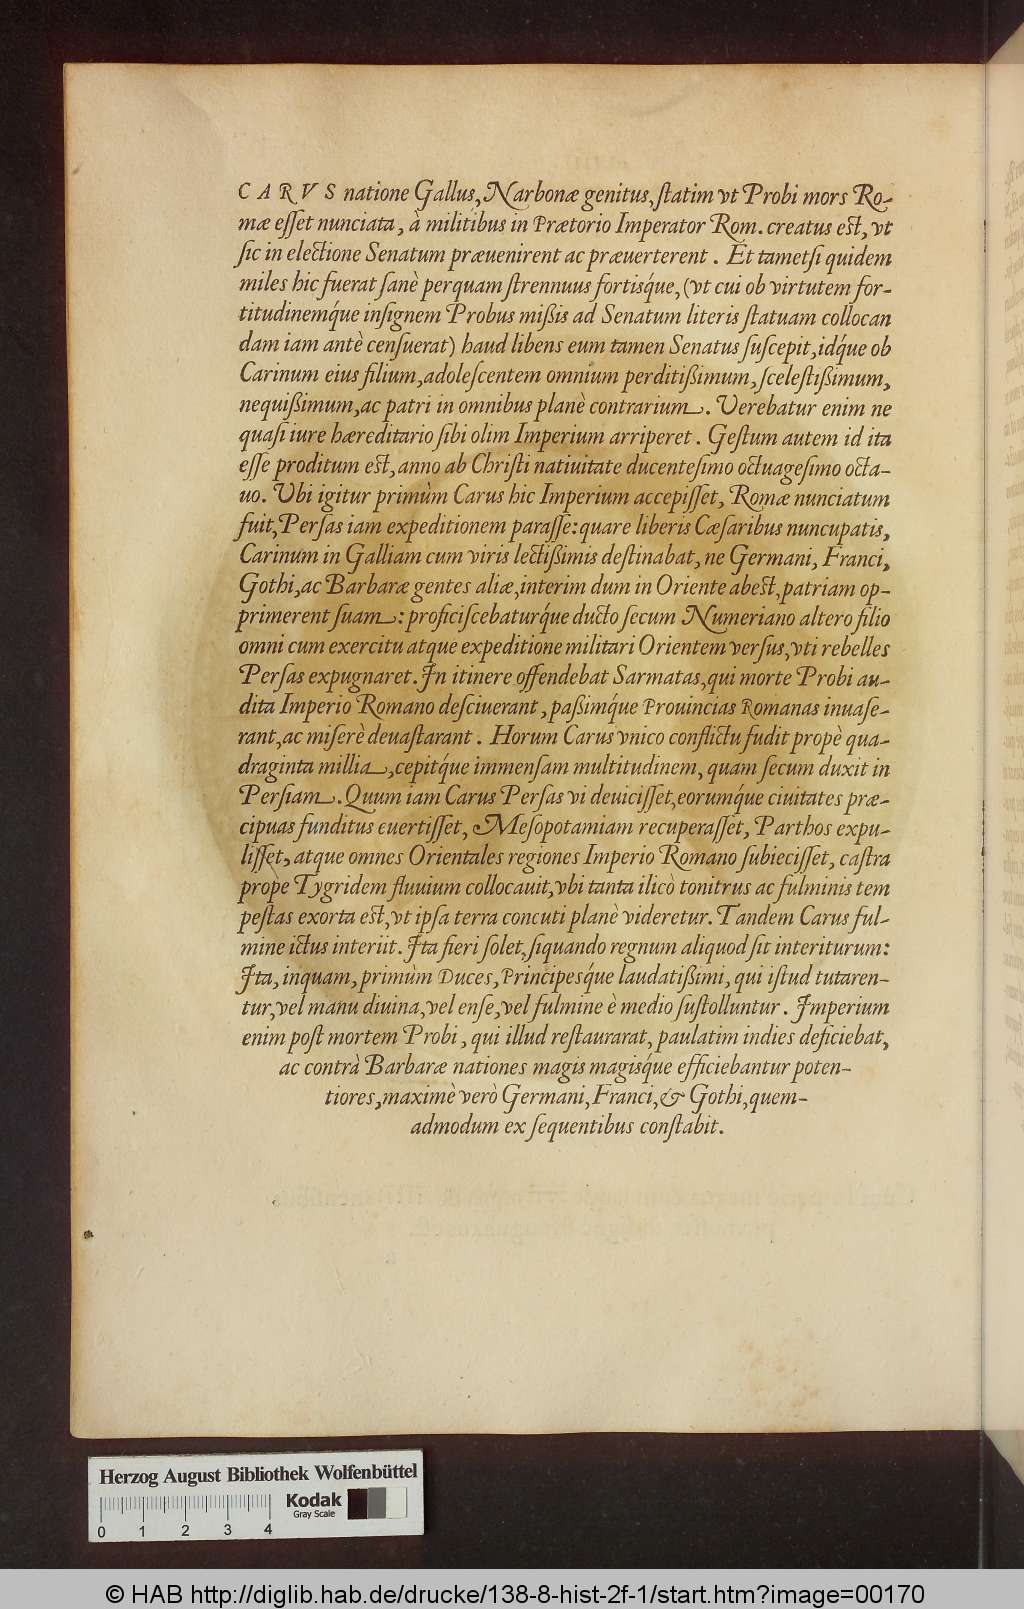 CARVS natione Gallus, Narbonæ genitus, ſtatim vt Probi mors Ro-
mæ eſſet nunciata, à militibus in Prætorio Imperator Rom. creatus eſt, vt
ſic in electione Senatum præuenirent ac præuerterent. Et tametſi quidem
miles hic fuerat ſanè perquam ſtrennuus fortisq́ue, (vt cui ob virtutem for-
titudinemq́ue inſignem Probus mißis ad Senatum literis ſtatuam collocan
dam iam antè cenſuerat) haud libens eum tamen Senatus ſuſcepit, idq́ue ob
Carinum eius filium, adoleſcentem omnium perditißimum, ſceleſtißimum,
nequißimum, ac patri in omnibus planè contrarium. Verebatur enim ne
quaſi iure hæreditario ſibi olim Imperium arriperet. Geſtum autem id ita
eſſe proditum eſt, anno ab Chriſti natiuitate ducenteſimo octuageſimo octa-
uo. Vbi igitur primùm Carus hic Imperium accepiſſet, Romæ nunciatum
fuit, Perſas iam expeditionem paraſſe: quare liberis Cæſaribus nuncupatis,
Carinum in Galliam cum viris lectißimis deſtinabat, ne Germani, Franci,
Gothi, ac Barbaræ gentes aliæ, interim dum in Oriente abeſt, patriam op-
primerent ſuam: proficiſcebaturq́ue ducto ſecum Numeriano altero filio
omni cum exercitu atque expeditione militari Orientem verſus, vti rebelles
Perſas expugnaret. In itinere offendebat Sarmatas, qui morte Probi au-
dita Imperio Romano deſciuerant, paßimq́ue Prouincias Romanas inuaſe-
rant, ac miſerè deuaſtarant. Horum Carus vnico conflictu fudit propè qua-
draginta millia, cepitq́ue immenſam multitudinem, quam ſecum duxit in
Perſiam. Quum iam Carus Perſas vi deuiciſſet, eorumq́ue ciuitates præ-
cipuas funditus euertiſſet, Meſopotamiam recuperaſſet, Parthos expu-
liſſet, atque omnes Orientales regiones Imperio Romano ſubieciſſet, caſtra
propè Tygridem fluuium collocauit, vbi tanta ilicò tonitrus ac fulminis tem
peſtas exorta eſt, vt ipſa terra concuti planè videretur. Tandem Carus ful-
mine ictus interiit. Ita fieri ſolet, ſiquando regnum aliquod ſit interiturum:
Ita, inquam, primùm Duces, Principesq́ue laudatißimi, qui iſtud tutaren-
tur, vel manu diuina, vel enſe, vel fulmine è medio ſuſtolluntur. Imperium
enim poſt mortem Probi, qui illud reſtaurarat, paulatim indies deficiebat,
ac contrà Barbaræ nationes magis magisq́ue efficiebantur poten-
tiores, maximè verò Germani, Franci, & Gothi, quem-
admodum ex ſequentibus conſtabit.
Herzog August Bibliothek Wolfenbüttel
Kodak
Gray Scale
0 1 2 3 4
© HAB http://diglib.hab.de/drucke/138-8-hist-2f-1/start.htm?image=00170